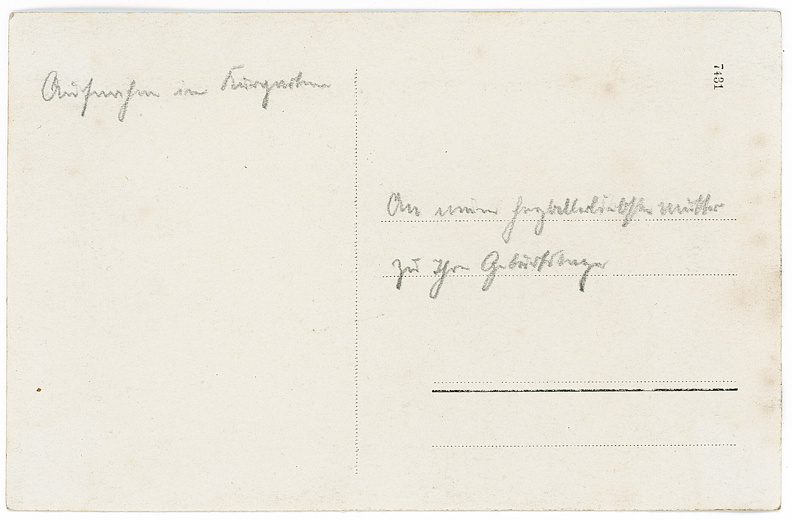 Aufnahme im Kurgarten
7431
An meine herzallerliebste Mutter
zu Ihrem Geburtstage